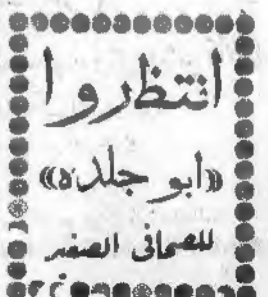 انتظروا
«ابو جلده»
للصحافى الصغير